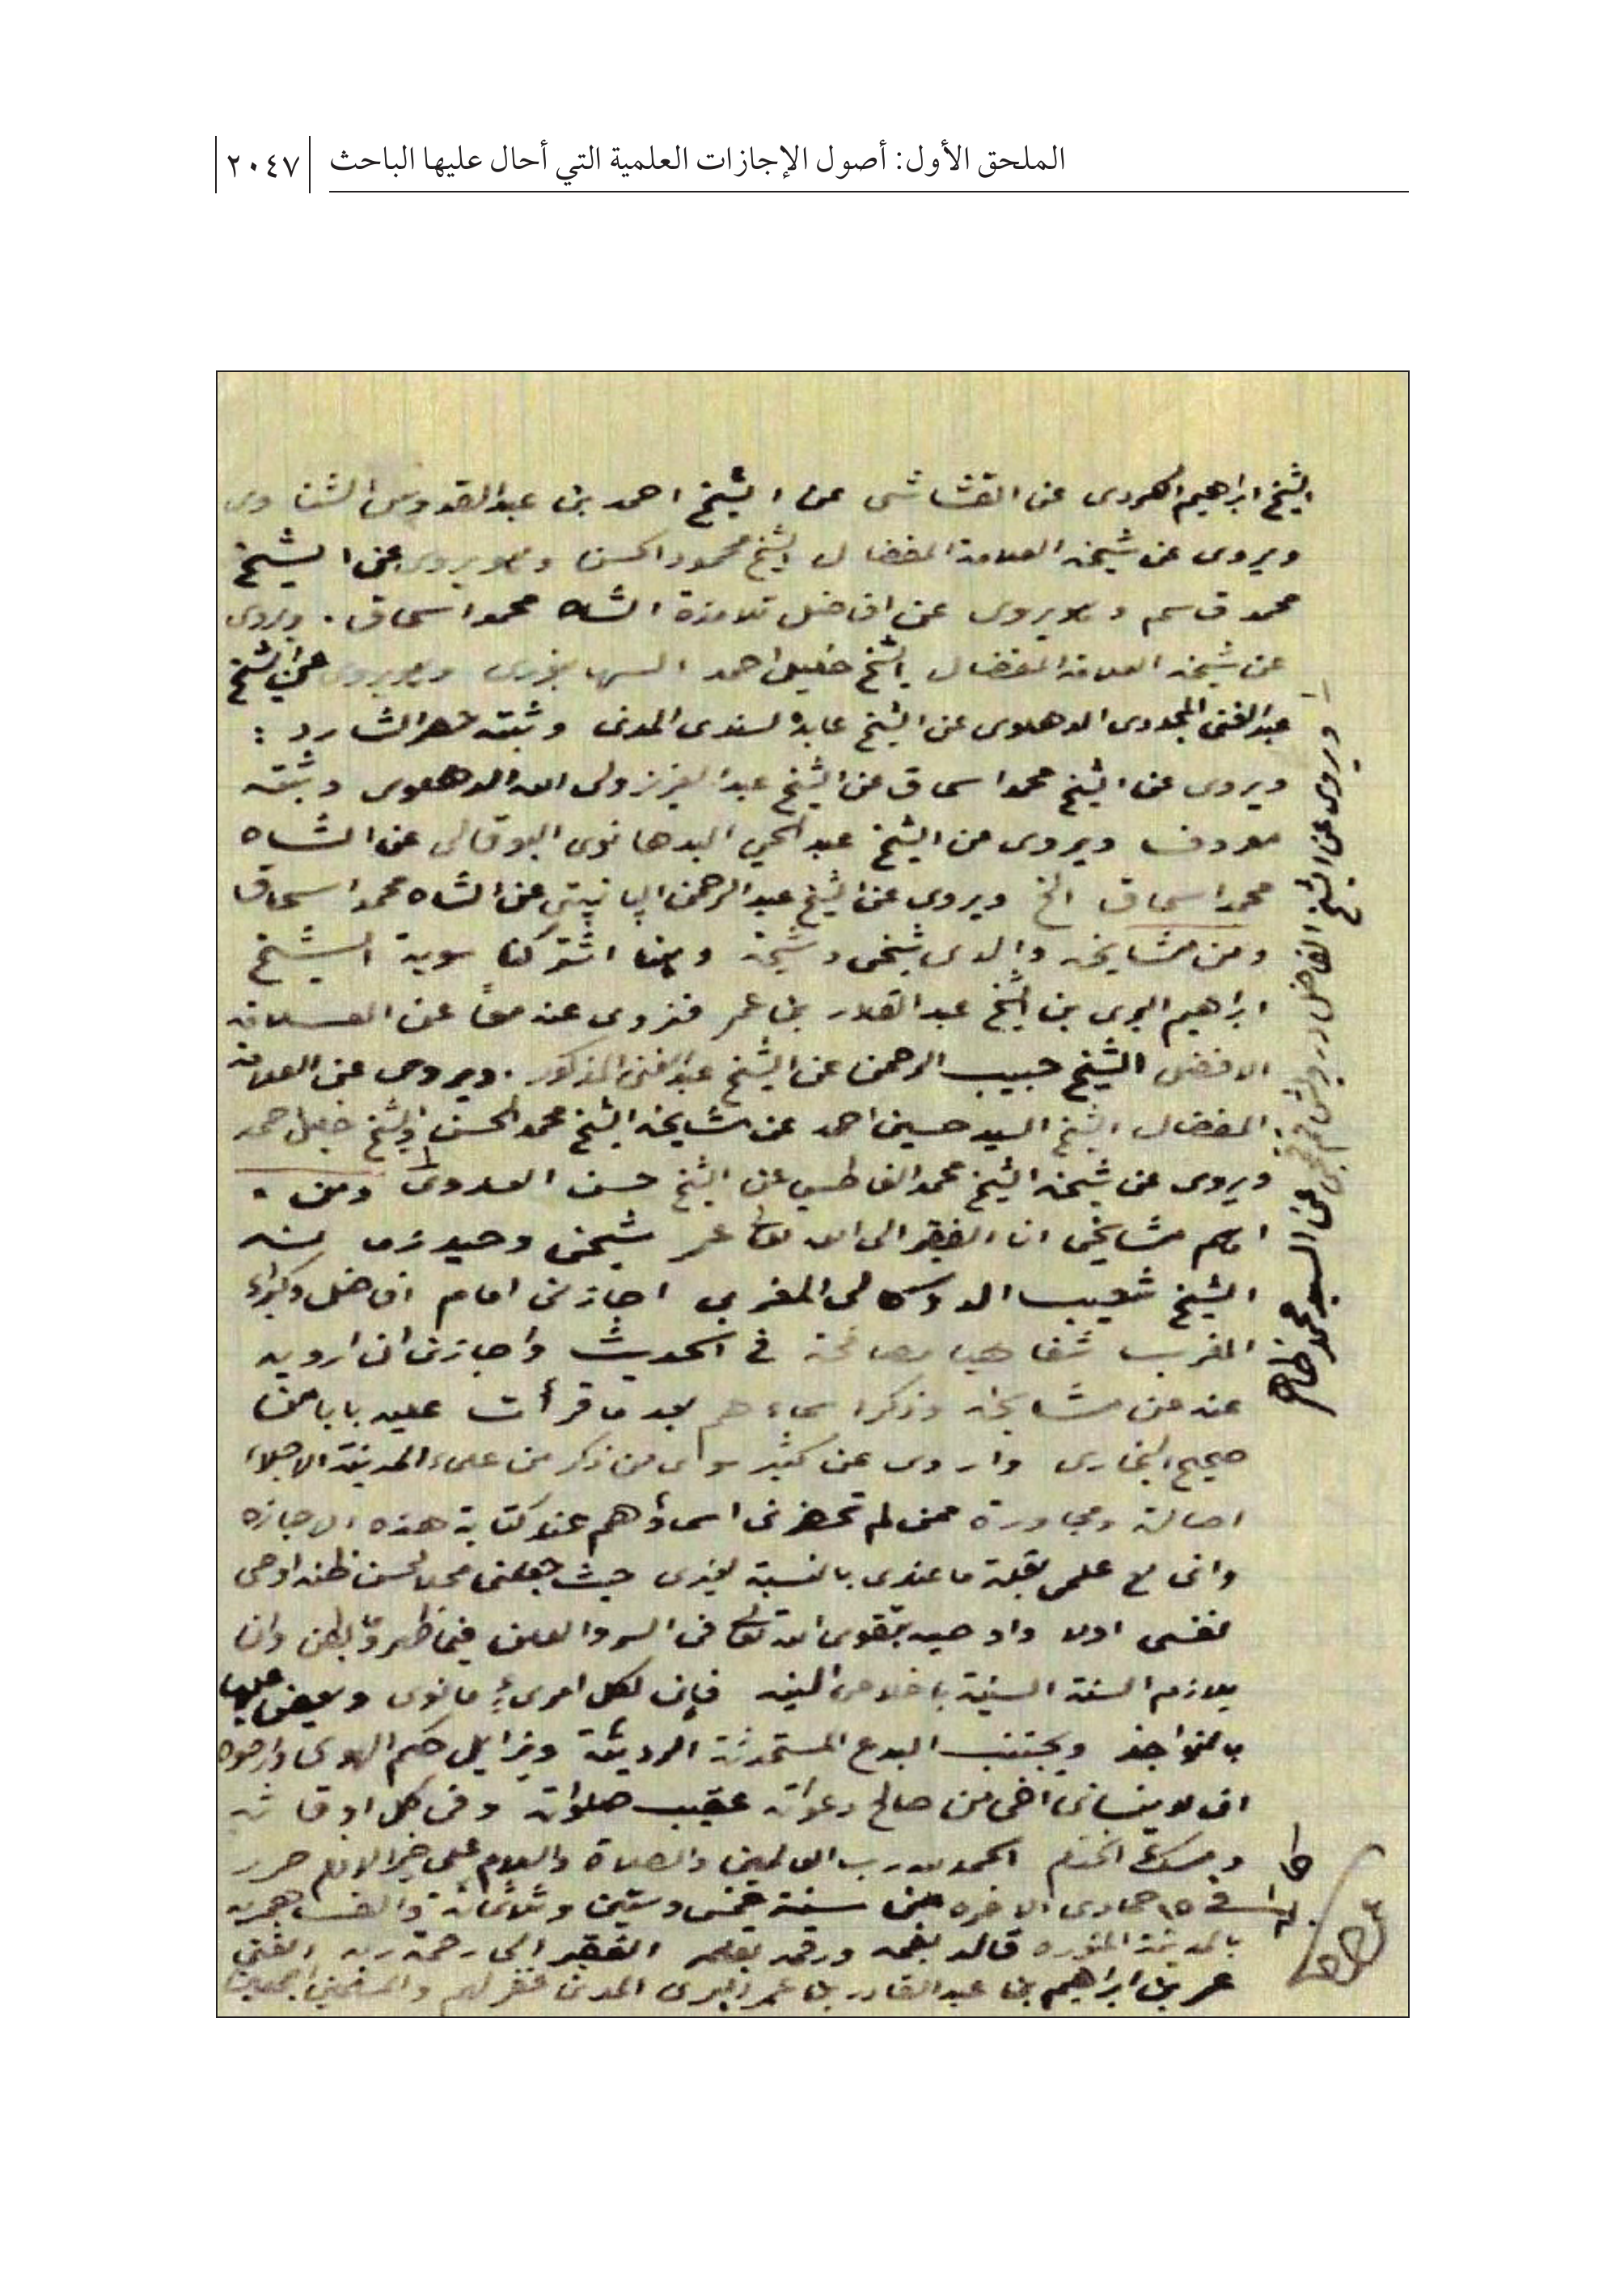 الملحق الأول: أصول الإجازات العلمية التي أحال عليها الباحث
٢٠٤٧
الشيخ ابراهيم الكردى عن القشاشى عن الشيخ احمد بن عبدالقدوس الشناوى
ويروى عن شيخه العلامة المفضال الشيخ محمود الحسن وهو يروى عن الشيخ
محمد قاسم وهو يروى عن افاضل تلامذة الشاه محمد اسحاق . ويروى
عن شيخه العلامة المفضال الشيخ خليل احمد السهارنفورى وهو يروى عن الشيخ
عبدالغنى المجددى الدهلوى عن الشيخ عابد السندى المدنى وثبته حصر الشارد :
ويروى عن الشيخ محمد اسحاق عن الشيخ عبدالعزيز ولى الله الدهلوى وثبته
معروف ويروى عن الشيخ عبدالحي البدهانوى البوفالى عن الشاه
محمد اسحاق الخ ويروى عن الشيخ عبدالرحمن الپانيپتى عن الشاه محمد اسحاق
ومن مشايخه والدى شيخى وشيخه وممن اشتركنا سوية الشيخ
ابراهيم البرى بن الشيخ عبدالقادر بن عمر فنروى عنه معاً عن العلامة
الافضل الشيخ حبيب الرحمن عن الشيخ عبدالغنى المذكور . ويروى عن العلامة
المفضال الشيخ السيد حسين احمد عن مشايخه الشيخ محمود الحسن والشيخ خليل احمد
ويروى عن شيخه الشيخ محمد الفا عن الشيخ حسن العدوى ومن .
اهم مشايخى انا الفقير الى الله تعالى عمر شيخى وحيد زمانه
الشيخ شعيب الدوكالى المغربي اجازنى امام افاضل وكبراء
المغرب شفاهيا مصافحة في الحديث واجازنى ان ارويه
عنه عن مشايخه وذكر اسماءهم بعد ما قرأت عليه بابا من
صحيح البخارى واروى عن كثير سواى من ذكر من علماء المدينة الاجلاء
اصالة ومجاورة ممن لم تحضرنى اسماؤهم عند كتابة هذه الاجازه
وانى مع علمى بقلة ما عندى بالنسبة لغيرى حيث جعلنى محلا لحسن ظنه اوصى
نفسى اولا واوصيه بتقوى الله تعالى فى السر والعلن فيما ظهر وما بطن وان
يلازم السنة السنية باخلاص النيه فإن لكل امرئ ما نوى ويعض عليها
بالنواجذ ويجتنب البدع المستحدثة الرديئة ويزايل حكم الهوى وارجوه
ان لا ينسانى اخى من صالح دعواته عقيب صلواته وفى كل اوقاته
ومسك الختام الحمد لله رب العالمين والصلاة والسلام على خير الانام حرر
في ١٥ جمادى الاخره من سنة خمس وستين وثلاثمائة والف هجريه
بالمدينة المنوره قاله بفمه ورقمه بقلمه الفقير الى رحمة ربه الغنى
عمر بن ابراهيم بن عبدالقادر بن عمر البرى المدنى غفر لهم والمسلمين اجمعين
ويروى عن الشيخ الفاضل عن السيد محمد ظاهر